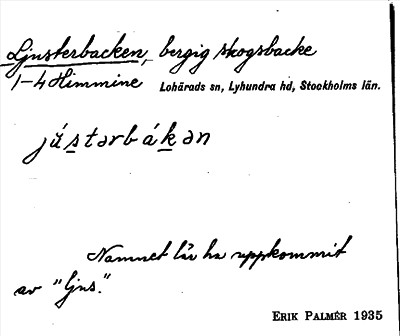 Ljusterbacken, bergig skogsbacke
1-4 Himmine Lohärads sn, Lyhundra hd, Stockholms län.
jústərbákən
Namnet lär ha uppkommit
av "ljus."
ERIK PALMÉR 1935